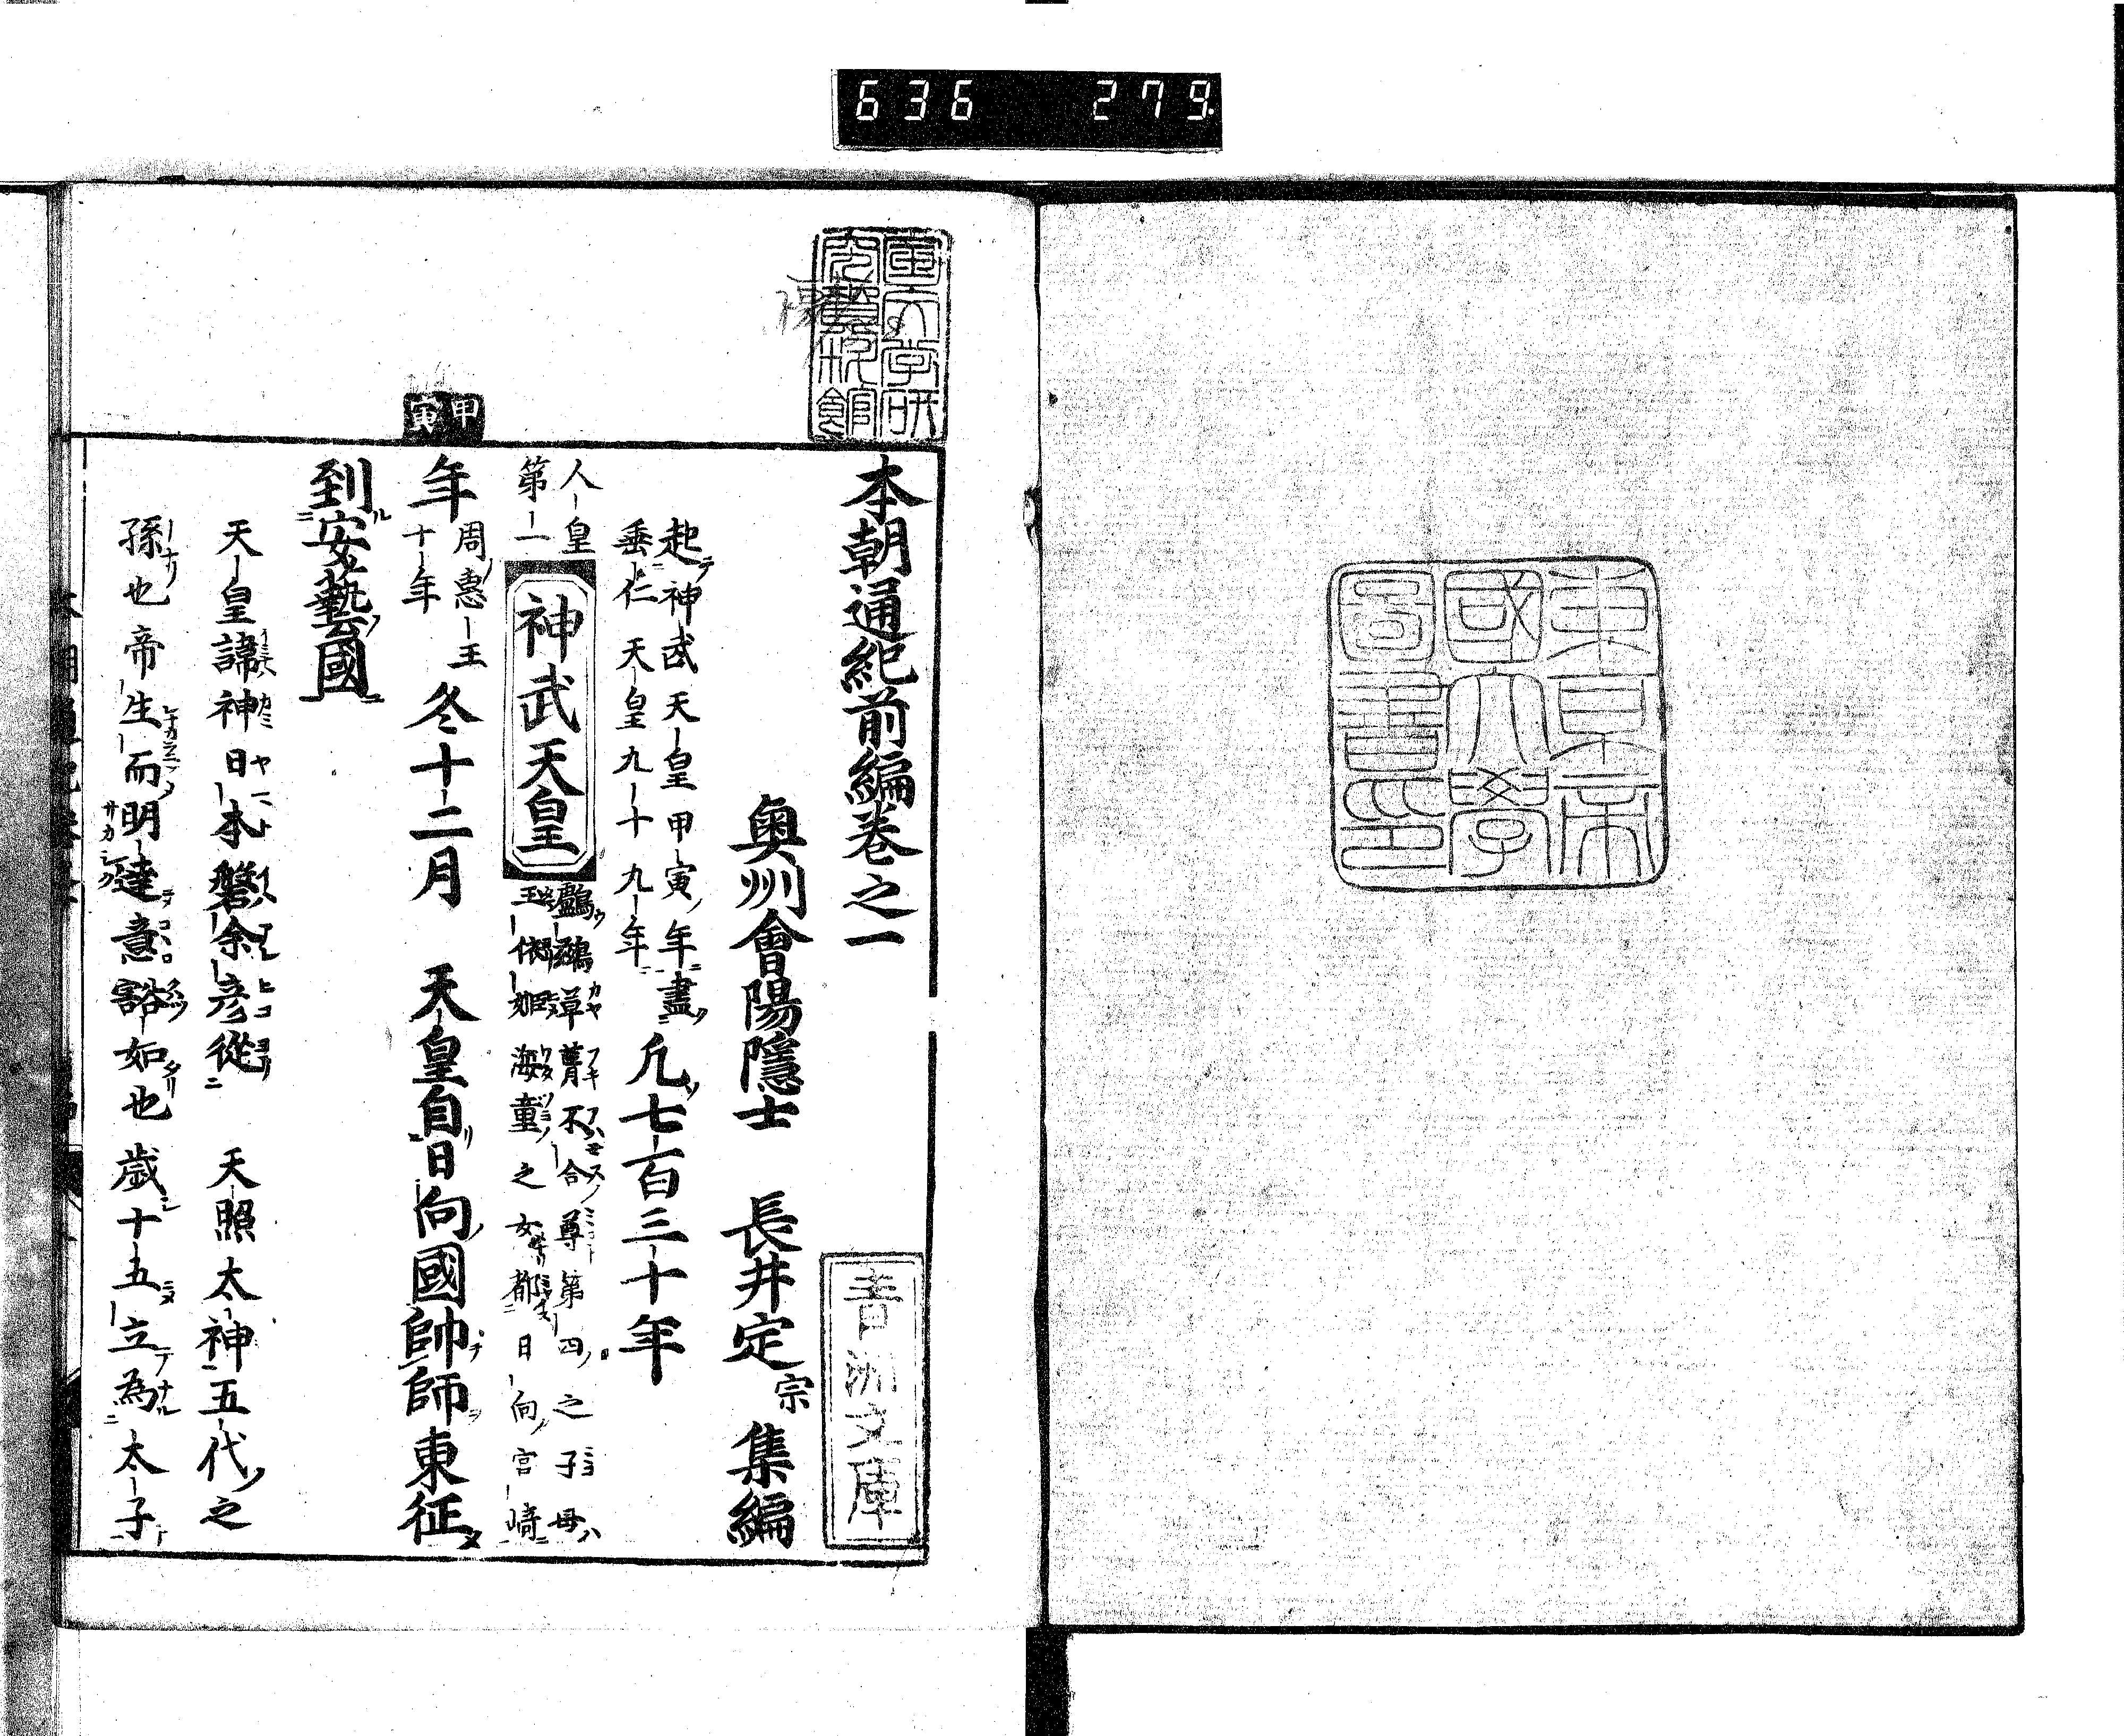 636 279
東京帝
國大學
圖書印
本朝通紀前編卷之一
奧州會陽隱士 長井定宗 集編
起神武天皇甲寅年盡
垂仁天皇九十九年
凡七百三十年
人皇
第一
神武天皇
鸕鷀草葺不合尊第四之子母
玉依姬海童之女都日向宮崎
甲寅
年周惠王
十年
冬十二月 天皇自日向國帥師東征
到安藝國
天皇諱神日本磐余彥從 天照太神五代之
孫也帝生而明達意豁如也歲十五立為太子
青洲文庫